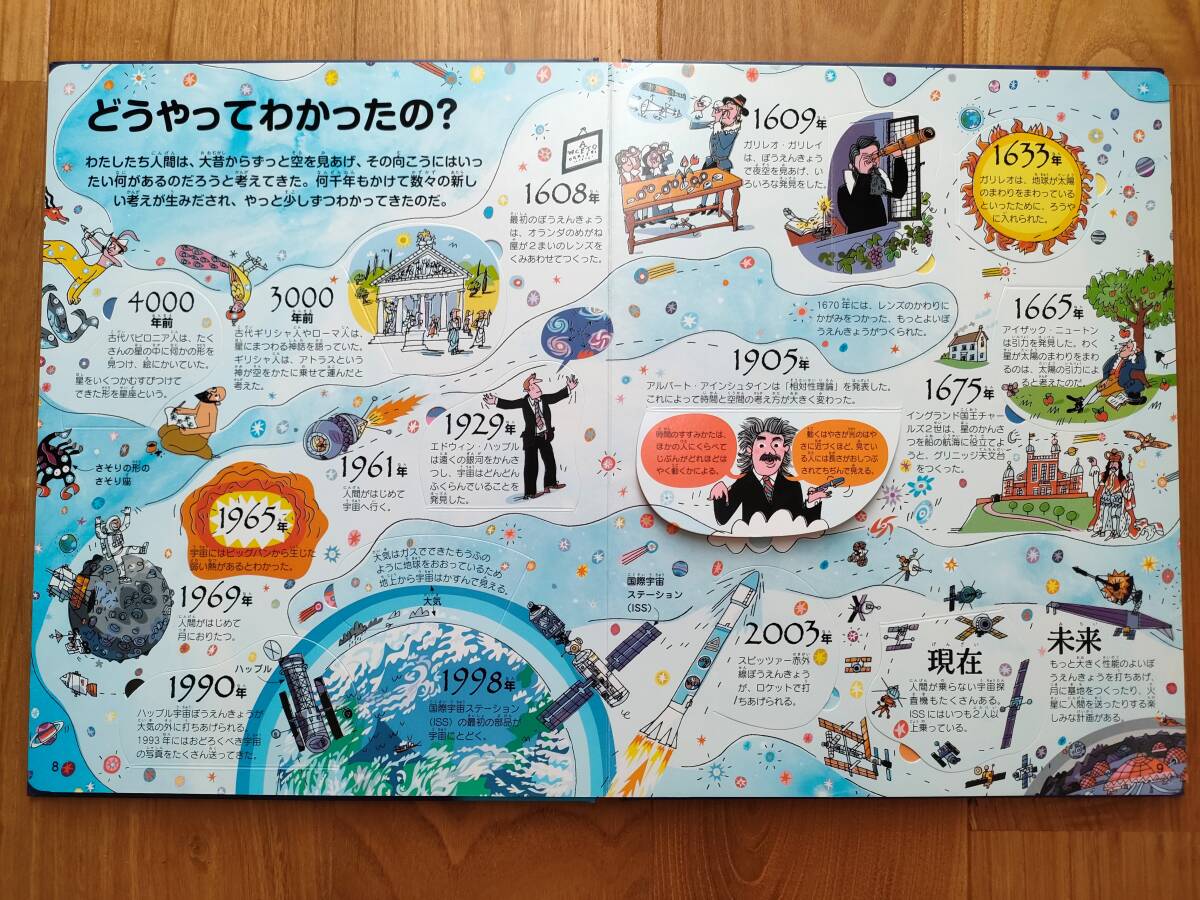 どうやってわかったの?
わたしたち人間は、大昔からずっと空を見あげ、その向こうにはいっ
たい何があるのだろうと考えてきた。何千年もかけて数々の新し
い考えが生みだされ、やっと少しずつわかってきたのだ。
4000
年前
古代バビロニア人は、たく
さんの星の中に何かの形を
見つけ、絵にかいていた。
星をいくつかむすびつけて
できた形を星座という。
さそりの形の
さそり座
3000
年前
古代ギリシャ人やローマ人は、
星にまつわる神話を語っていた。
ギリシャ人は、アトラスという
神が空をかたに乗せて運んだと
考えた。
1608年
最初のぼうえんきょう
は、オランダのめがね
屋が2まいのレンズを
くみあわせてつくった。
1609年
ガリレオ・ガリレイ
は、ぼうえんきょう
で夜空を見あげ、い
ろいろな発見をした。
1633年
ガリレオは、地球が太陽
のまわりをまわっている
といったために、ろうや
に入れられた。
1665年
アイザック・ニュートン
は引力を発見した。わく
星が太陽のまわりをまわ
るのは、太陽の引力によ
ると考えたのだ。
1670年には、レンズのかわりに
かがみをつかった、もっとよいぼ
うえんきょうがつくられた。
1675年
イングランド国王チャー
ルズ2世は、星のかんさ
つを船の航海に役立てよ
うと、グリニッジ天文台
をつくった。
1905年
アルバート・アインシュタインは「相対性理論」を発表した。
これによって時間と空間の考え方が大きく変わった。
時間のすすみかたは、
ほかの人にくらべて
じぶんがどれほどは
やく動くかによる。
動くはやさが光のはや
さに近づくほど、見てい
る人には長さがおしつぶ
されてちぢんで見える。
1929年
エドウィン・ハッブル
は遠くの銀河をかんさ
つし、宇宙はどんどん
ふくらんでいることを
発見した。
1961年
人間がはじめて
宇宙へ行く。
1965年
宇宙にはビッグバンから生じた
弱い熱があるとわかった。
1969年
人間がはじめて
月におりたつ。
天気はガスでできたもうふの
ように地球をおおっているため
地上から宇宙はかすんで見える。
大気
ハッブル
1990年
ハッブル宇宙ぼうえんきょうが
大気の外に打ちあげられる。
1993年にはおどろくべき宇宙
の写真をたくさん送ってきた。
1998年
国際宇宙ステーション
(ISS)の最初の部品が
宇宙にとどく。
国際宇宙
ステーション
(ISS)
2003年
スピッツァー赤外
線ぼうえんきょう
が、ロケットで打
ちあげられる。
現在
人間が乗らない宇宙探
査機もたくさんある。
ISSにはいつも2人以
上乗っている。
未来
もっと大きく性能のよいぼ
うえんきょうを打ちあげ、
月に基地をつくったり、火
星に人間を送ったりする楽
しみな計画がある。
8
9